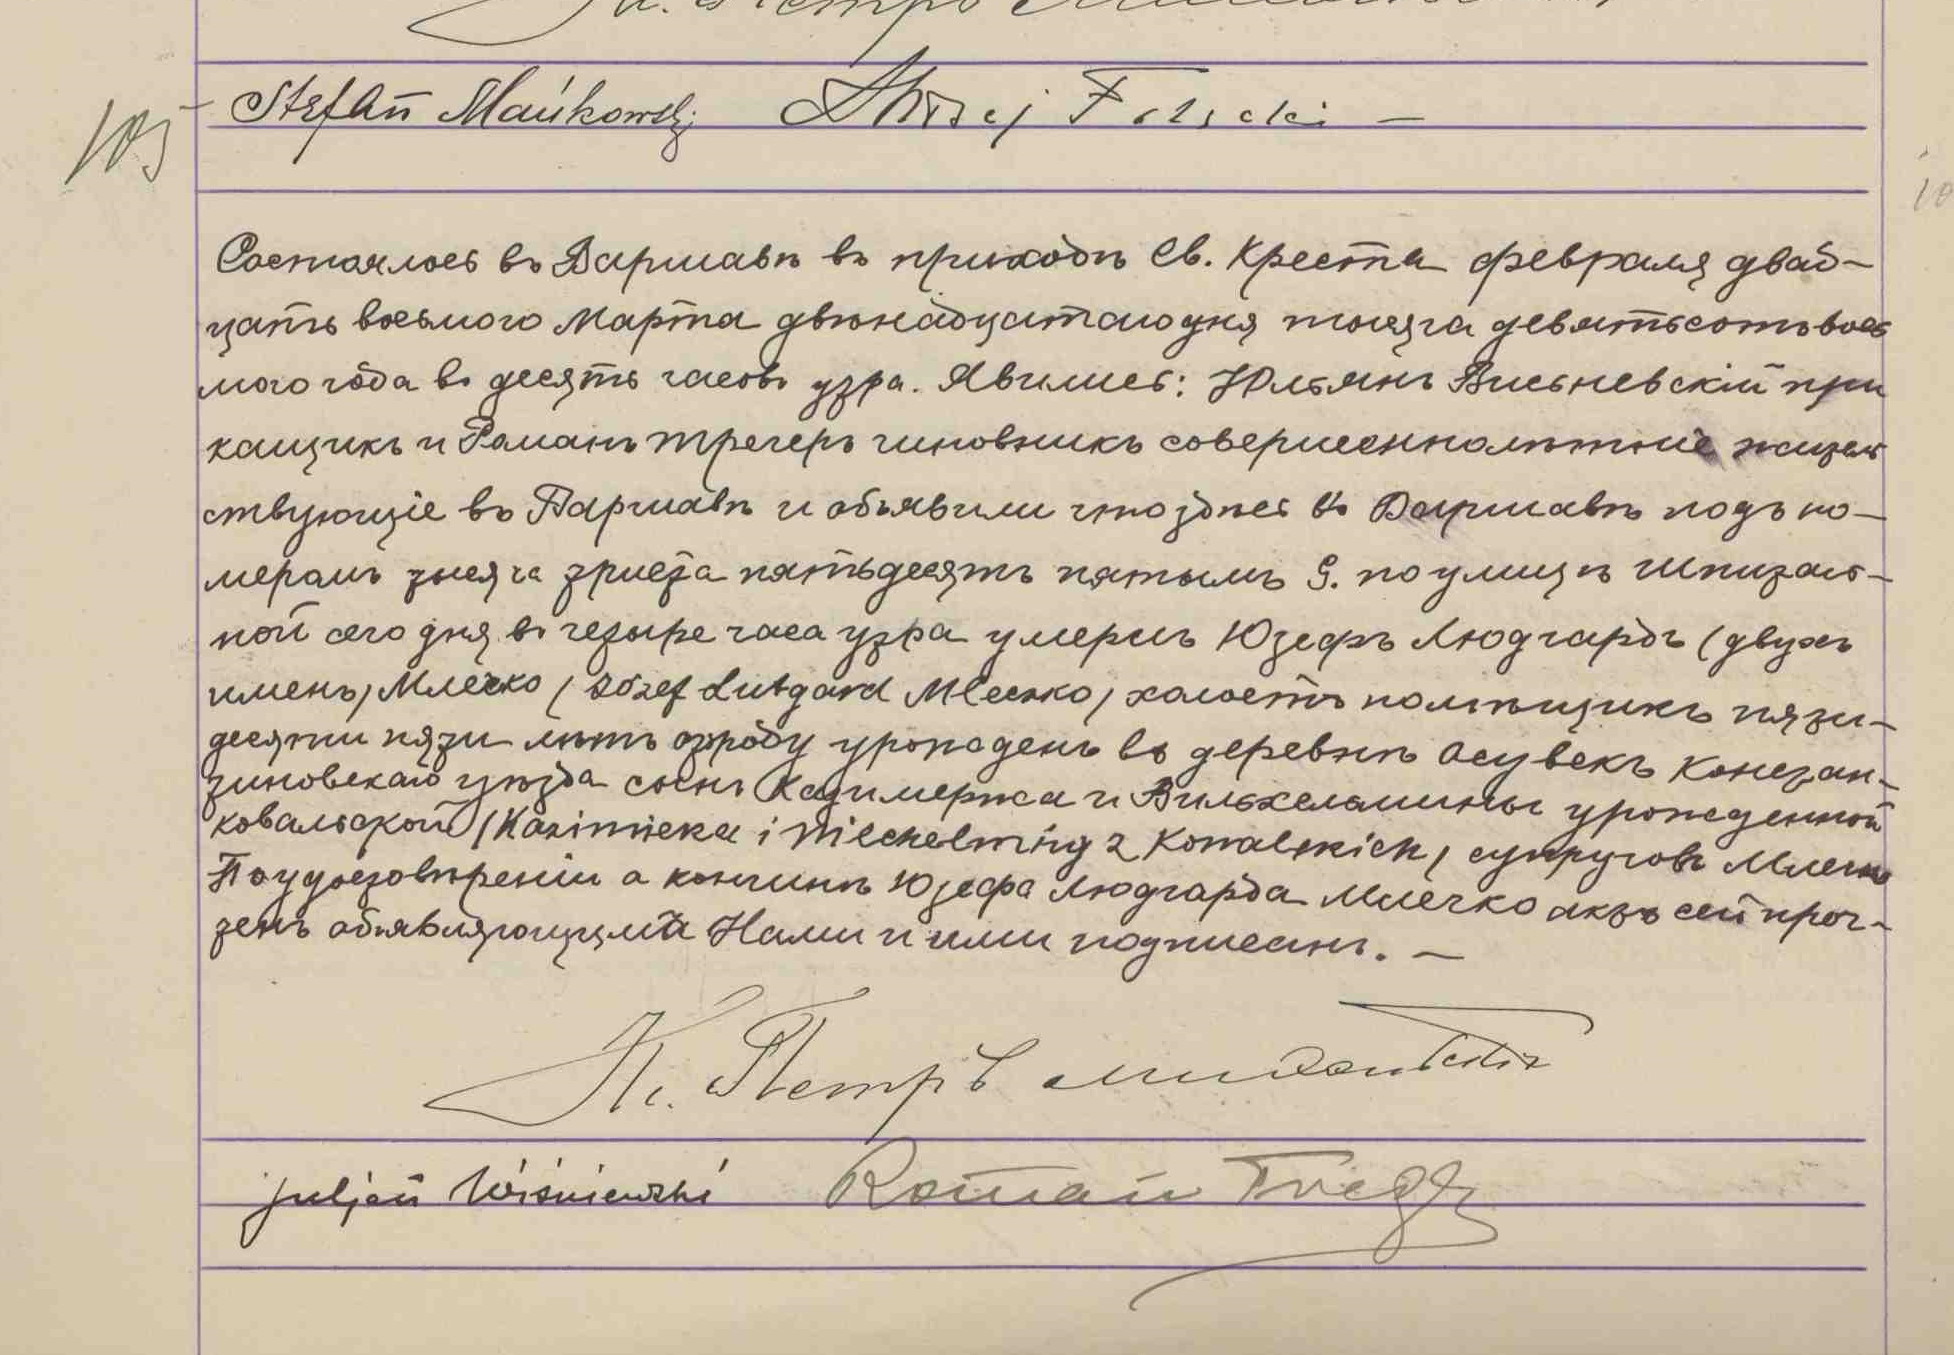 Stefan Mańkowski
105
Состоялось въ Варшавѣ въ приходѣ Св. Креста февраля двад-
цать восьмого Марта двѣнадцатаго дня тысяча девятьсотъ вось
мого года въ десять часовъ утра. Явились: Юльянъ Висьневскій при
кащикъ и Романъ Трегеръ чиновникъ совершеннолѣтніе жител
ствующіе въ Варшавѣ и объявили что здѣсь въ Варшавѣ подъ но-
меромъ тысяча триста пятьдесятъ пятымъ G. по улицѣ Шпиталь-
ной сего дня въ четыре часа утра умеръ Юзефъ Людгардъ (двухъ
именъ) Млечко (Józef Lutgard Mleczko) холостъ помѣщикъ пяти-
десяти пяти лѣтъ отроду урожденъ въ деревнѣ Осувекъ Констан-
тиновскаго уѣзда сынъ Казимержа и Вильхельмины урожденной
Ковальской (Kazimierza i Wilchelminy z Kowalskich) супруговъ Млечко
По удостовѣреніи о кончинѣ Юзефа Людгарда Млечко актъ сей проч-
тенъ объявляющимъ Нами и ими подписанъ. —
Кс. Петръ
Juljan Wiśniewski Roman